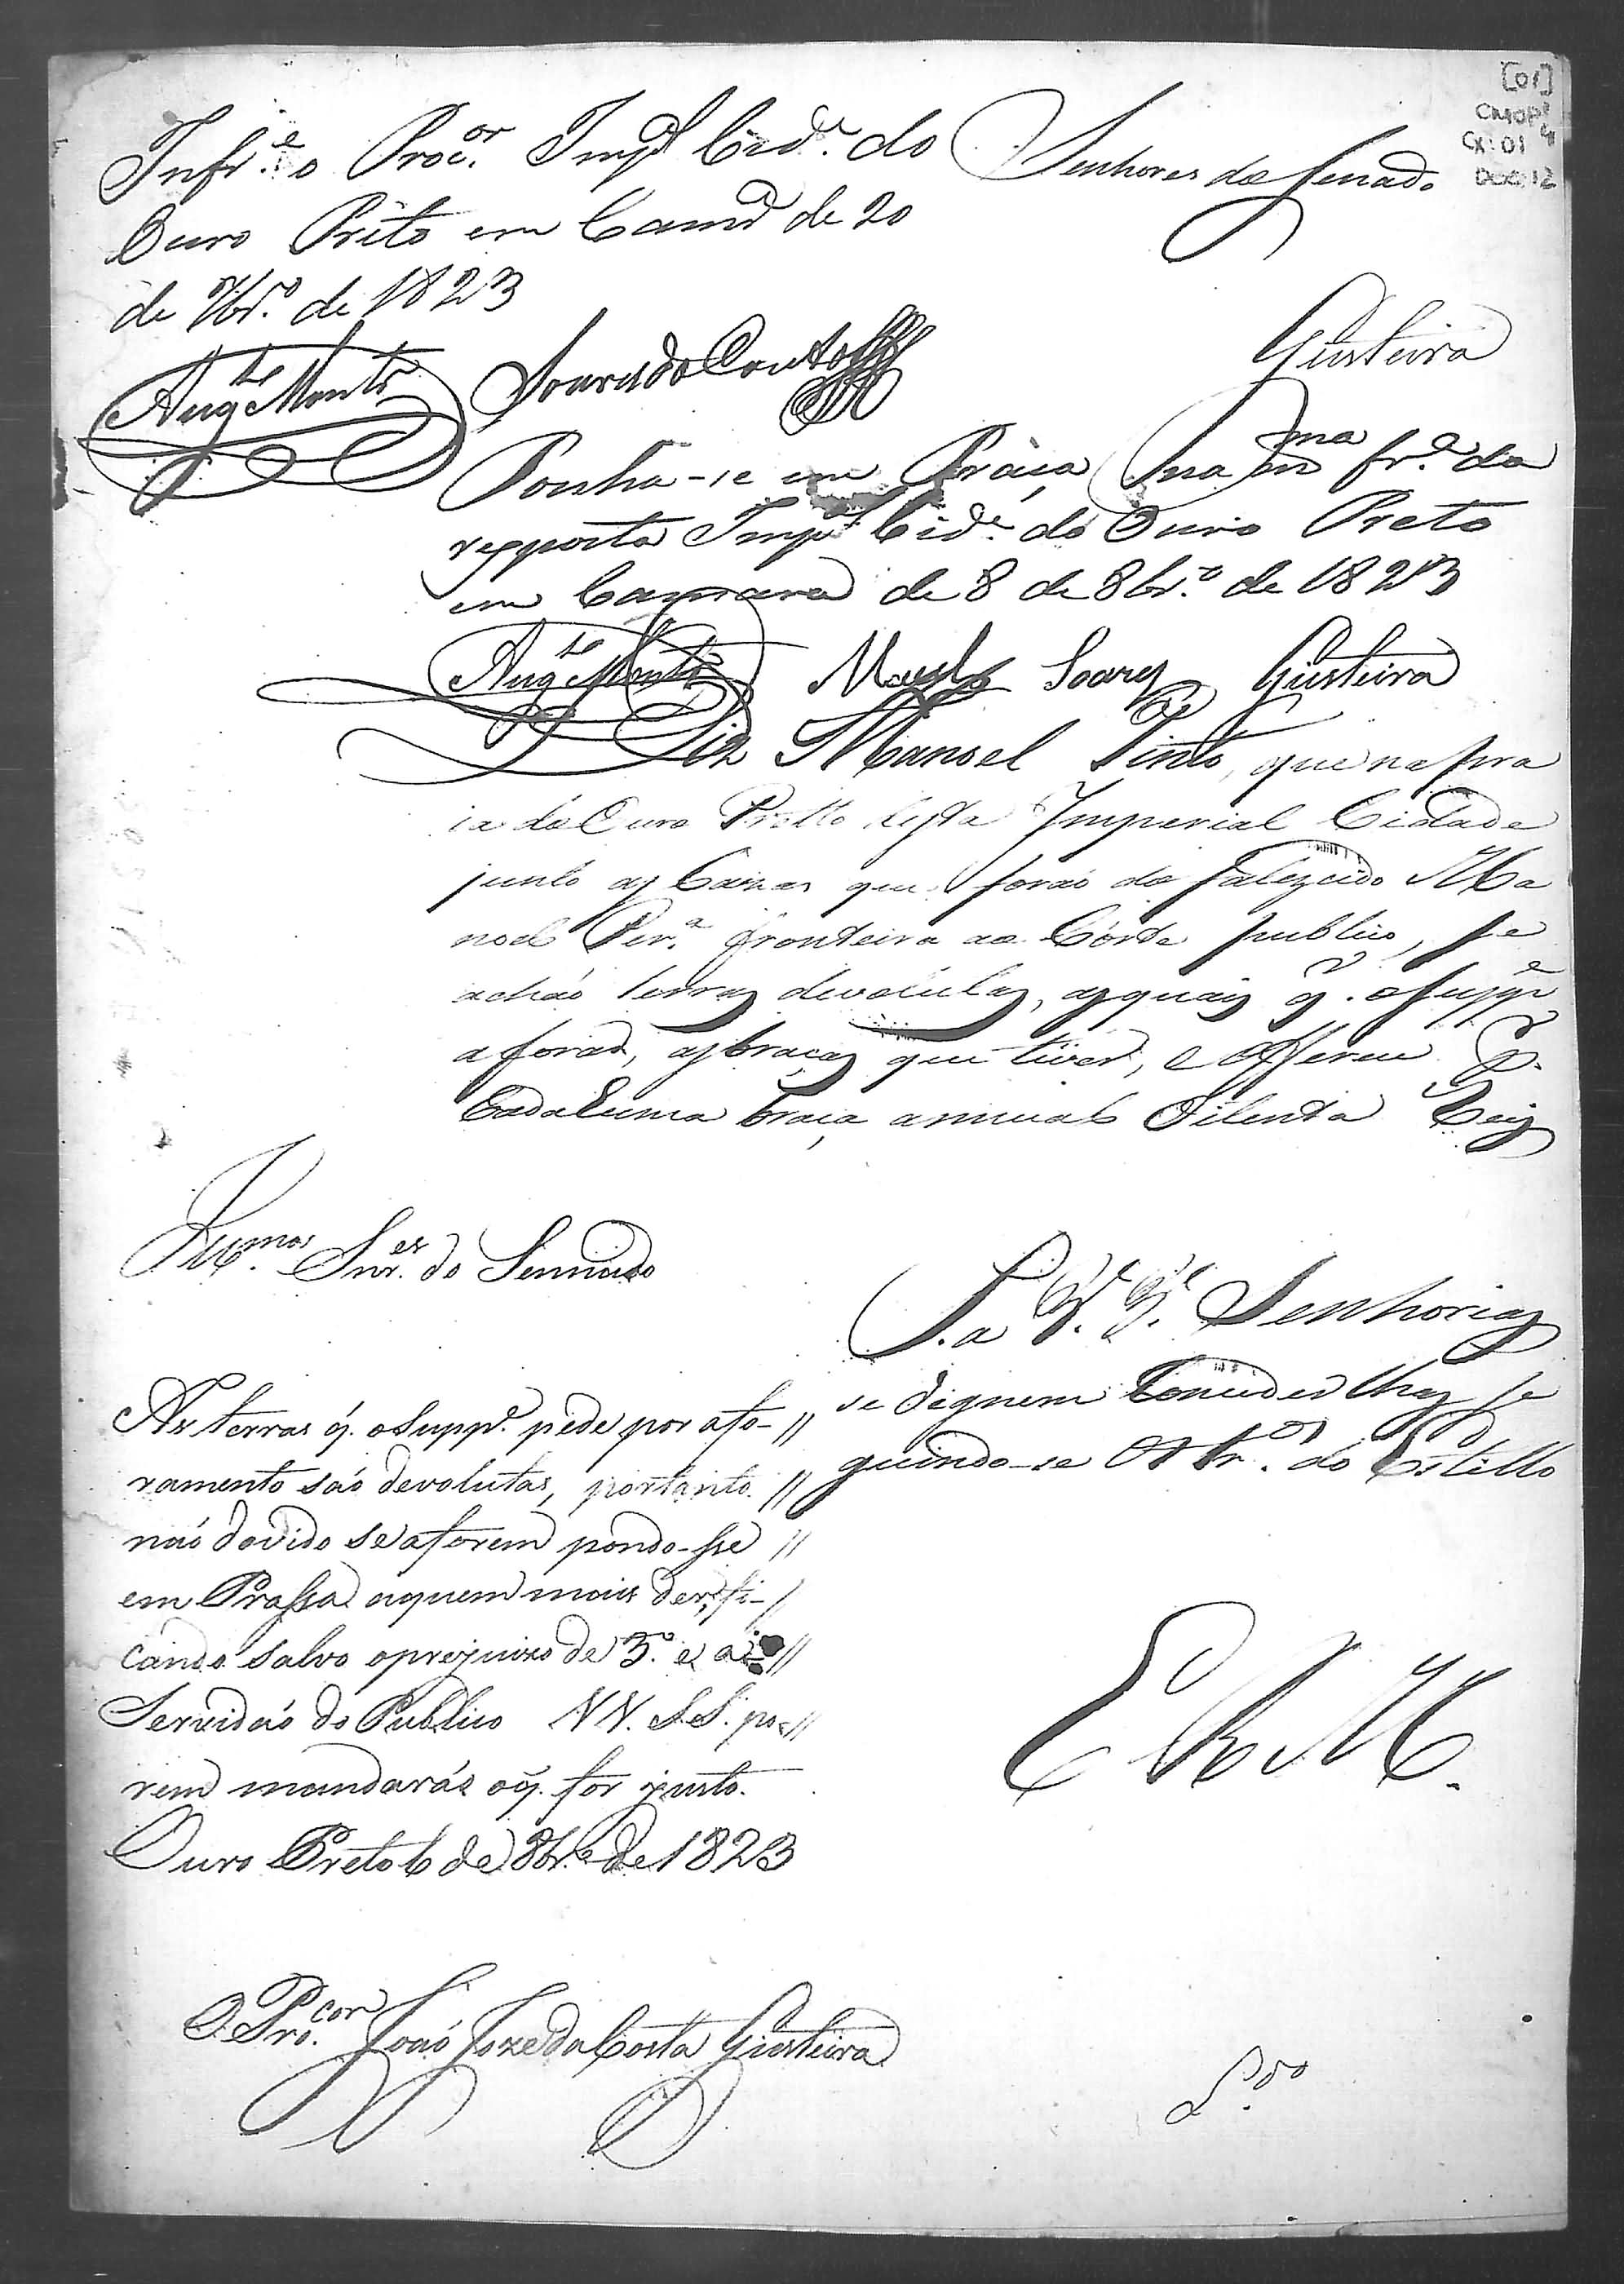 [01]
CMOP
CX: 01
DOC: 12
Infr.e o Proc.or Imp.l Cid.e do
Ouro Prêto em Cam.a de 20
de 7br.o de 1823
Senhores do Senado
Aug.to Montr.o Soares do Couto Giesteira
Ponha-se em Praça na m.ma fr.a da
resposta Imp.l Cid.e do Ouro Preto
em Camara de 8 de 8br.o de 1823
Aug.to Montr.o Soares Giesteira
Diz Manoel Pinto, que na pra
ia do Ouro Pretto desta Imperial Cidade
junto as Cazas que forão do falezcido Ma
noel Per.a fronteira ao Córte publico, se
achão terras devolutas, as quais q.r o supp.e
aforar, as braças que tiver, e offerece p.r
Cada huma braça annual Oitenta Reis
P. a V.V. Senhorias
se dignem Conceder lhas se
guindo-se os tr.os do Estillo
E R M.
Ill.mos Snr.es do Sennado
As terras q. o Supp.e pede por afo-
ramento são devolutas, portanto
não dovido se aforem pondo-sse
em Prassa aquem mais der, fi-
cando salvo o prejuizo de 3.o e a
Servidão do Publico VV. S.S. po-
rem mandarás o q. for justo.
Ouro Preto 6 de 8br.o de 1823
O Pro.cor João Joze da Costa Giesteira